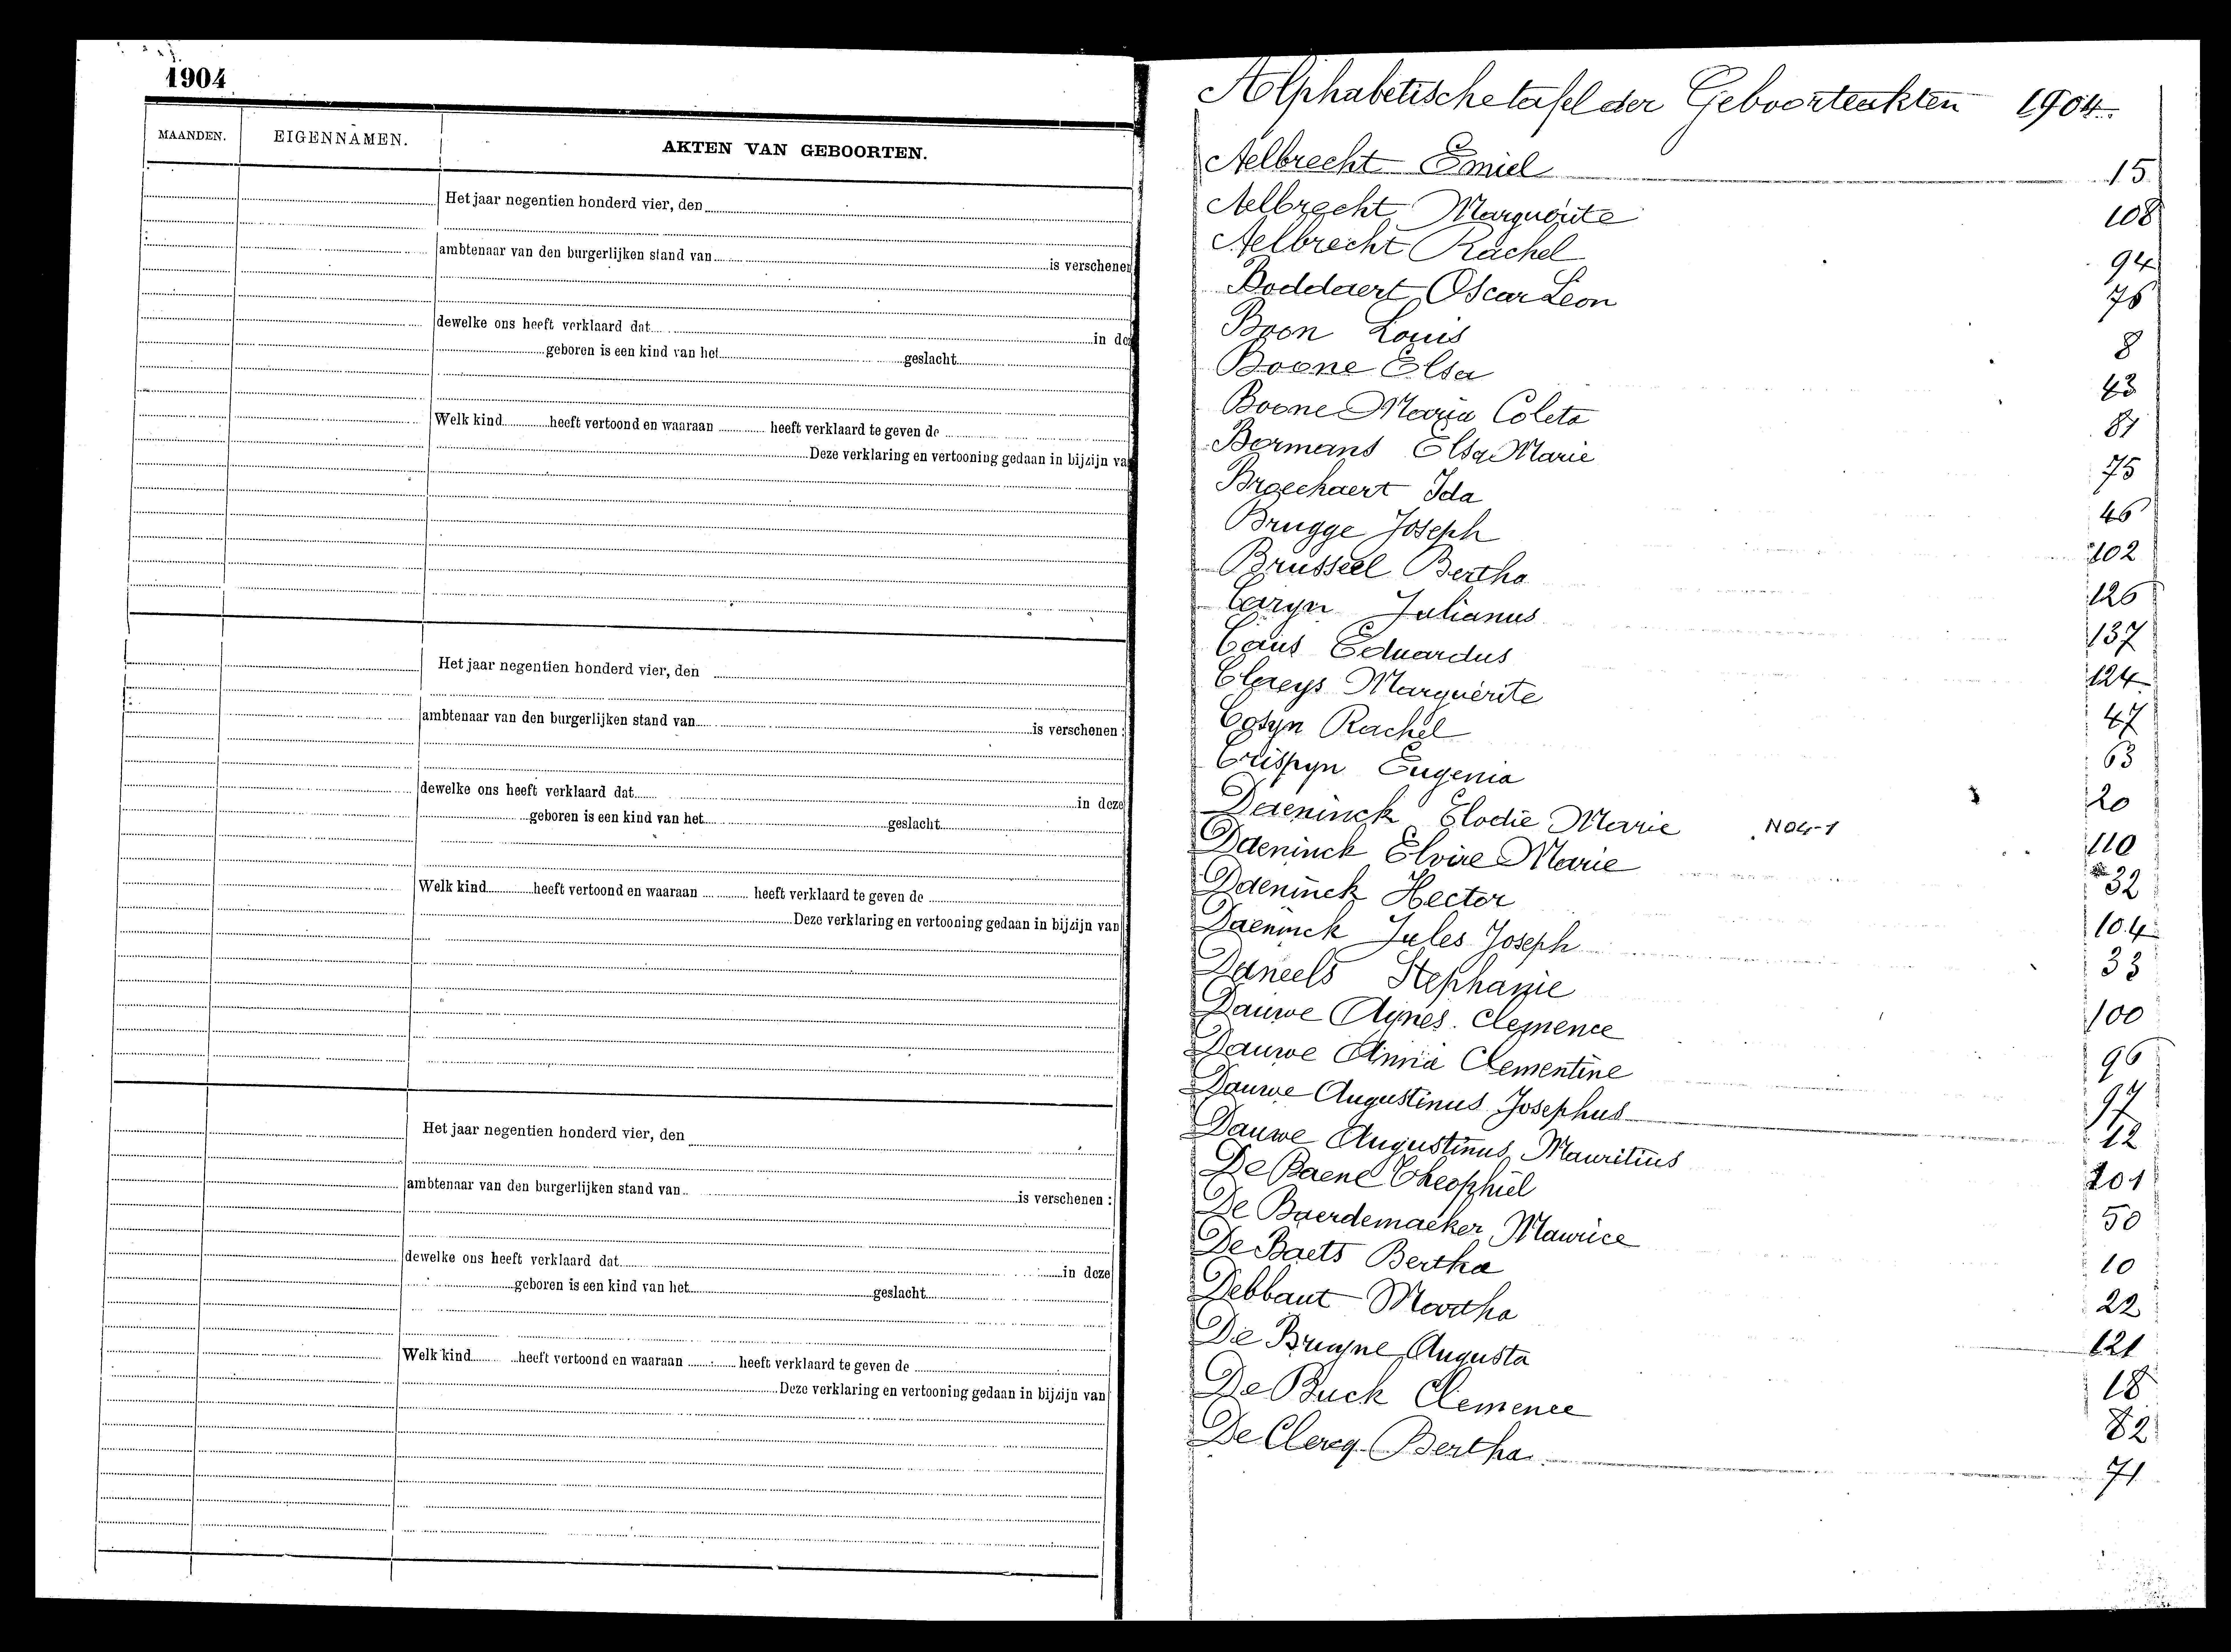 1904
MAANDEN. EIGENNAMEN. AKTEN VAN GEBOORTEN.
Het jaar negentien honderd vier, den
ambtenaar van den burgerlijken stand van is verschenen
dewelke ons heeft verklaard dat in de
geboren is een kind van het geslacht
Welk kind heeft vertoond en waaraan heeft verklaard te geven de
Deze verklaring en vertooning gedaan in bijzijn va
Het jaar negentien honderd vier, den
ambtenaar van den burgerlijken stand van is verschenen :
dewelke ons heeft verklaard dat in deze
geboren is een kind van het geslacht
Welk kind heeft vertoond en waaraan heeft verklaard te geven de
Deze verklaring en vertooning gedaan in bijzijn van
Het jaar negentien honderd vier, den
ambtenaar van den burgerlijken stand van is verschenen :
dewelke ons heeft verklaard dat in deze
geboren is een kind van het geslacht
Welk kind heeft vertoond en waaraan heeft verklaard te geven de
Deze verklaring en vertooning gedaan in bijzijn van
Alphabetische tafel der Geboorteakten 1904.
Aelbrecht Emiel 15
Aelbrecht Marguérite 108
Aelbrecht Rachel 94
Boddaert Oscar Leon 76
Boon Louis 8
Boone Elsa 43
Boone Maria Coleta 81
Bormans Elsa Marie 75
Broeckaert Ida 46
Brugge Joseph 102
Brusseel Bertha 126
Caryn Julianus 137
Caus Eduardus 124
Claeys Marguérite 47
Cosyn Rachel 63
Crispyn Eugenia 20
Daeninck Elodie Marie N04-1 110
Daeninck Elvire Marie 32
Daeninck Hector 104
Daeninck Jules Joseph 33
Daneels Stephanie 100
Dauwe Agnes Clemence 96
Dauwe Anna Clementine 97
Dauwe Augustinus Josephus 12
Dauwe Augustinus Mauritius 101
De Baene Theophiel 50
De Baerdemaeker Maurice 10
De Baets Bertha 22
Debbaut Martha 121
De Bruyne Augusta 18
De Buck Clemence 82
De Clercq Bertha 71